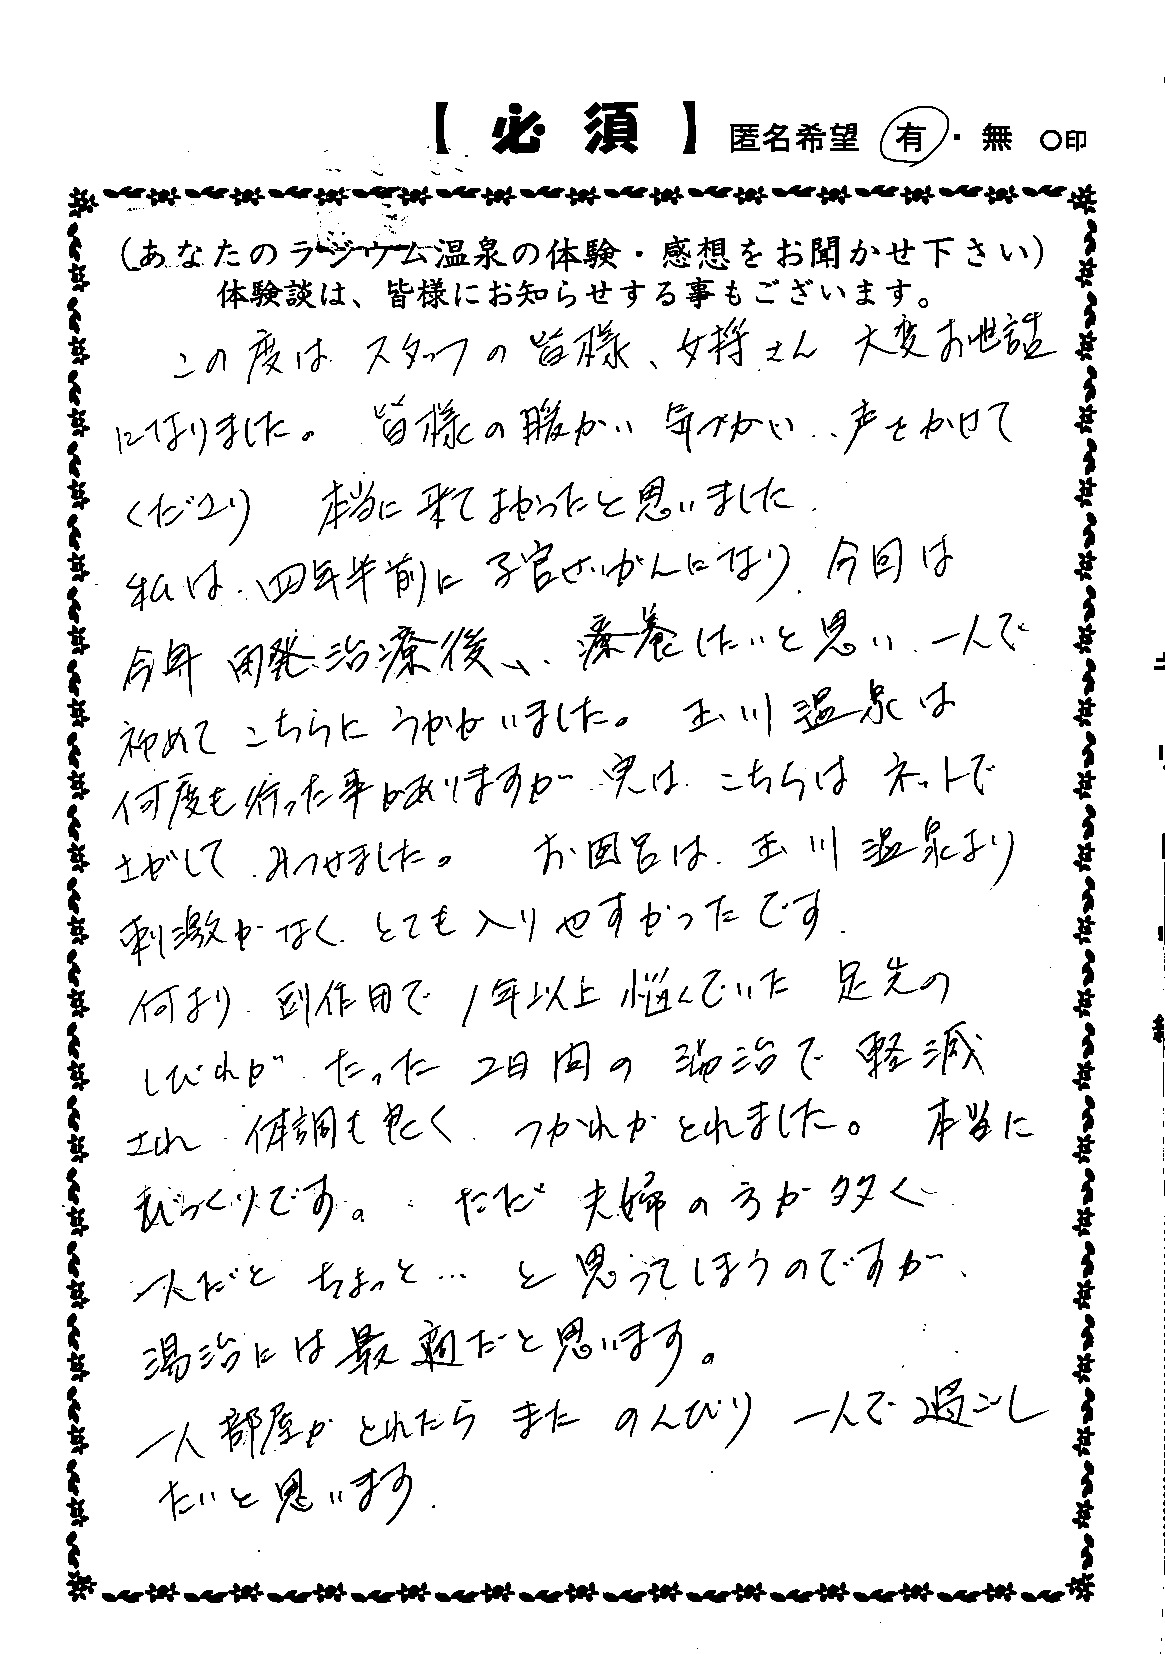 【必須】 匿名希望 有・無 ○印
(あなたのラジウム温泉の体験・感想をお聞かせ下さい)
体験談は、皆様にお知らせする事もございます。
この度は スタッフの皆様、女将さん 大変お世話
になりました。 皆様の暖かい 気づかい、声をかせて
くださり 本当に来てよかったと思いました.
私は、四年半前に 子宮せいがんになり、今回は
今年 再発治療後、、療養したいと思い、一人で
初めて こちらに うかがいました。 玉川温泉は
何度も行った事がありますが 実は、こちらは ネットで
さがして、みつけました。 お風呂は、玉川温泉より
刺激がなく、とても入りやすかったです.
何より、副作用で 1年以上悩んでいた 足先の
しびれが、たった 2日間の 湯治で 軽減
され、体調も良く、つかれがとれました。 本当に
びっくりです。 ただ 夫婦の方が多く
一人だと ちょっと… と思ってしまうのですが、
湯治には最適だと思います。
一人部屋がとれたら また のんびり 一人で過ごし
たいと思います.